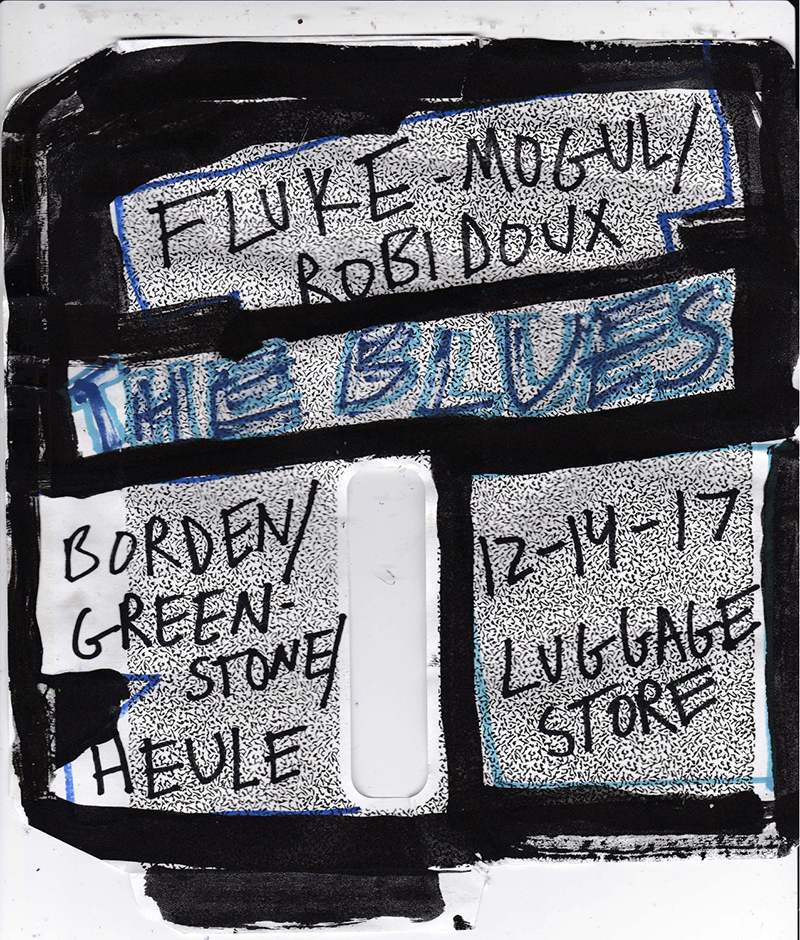 FLUKE-MOGUL/
ROBIDOUX
THE BLUES
BORDEN/
GREEN-
STONE/
HEULE
12-14-17
LUGGAGE
STORE